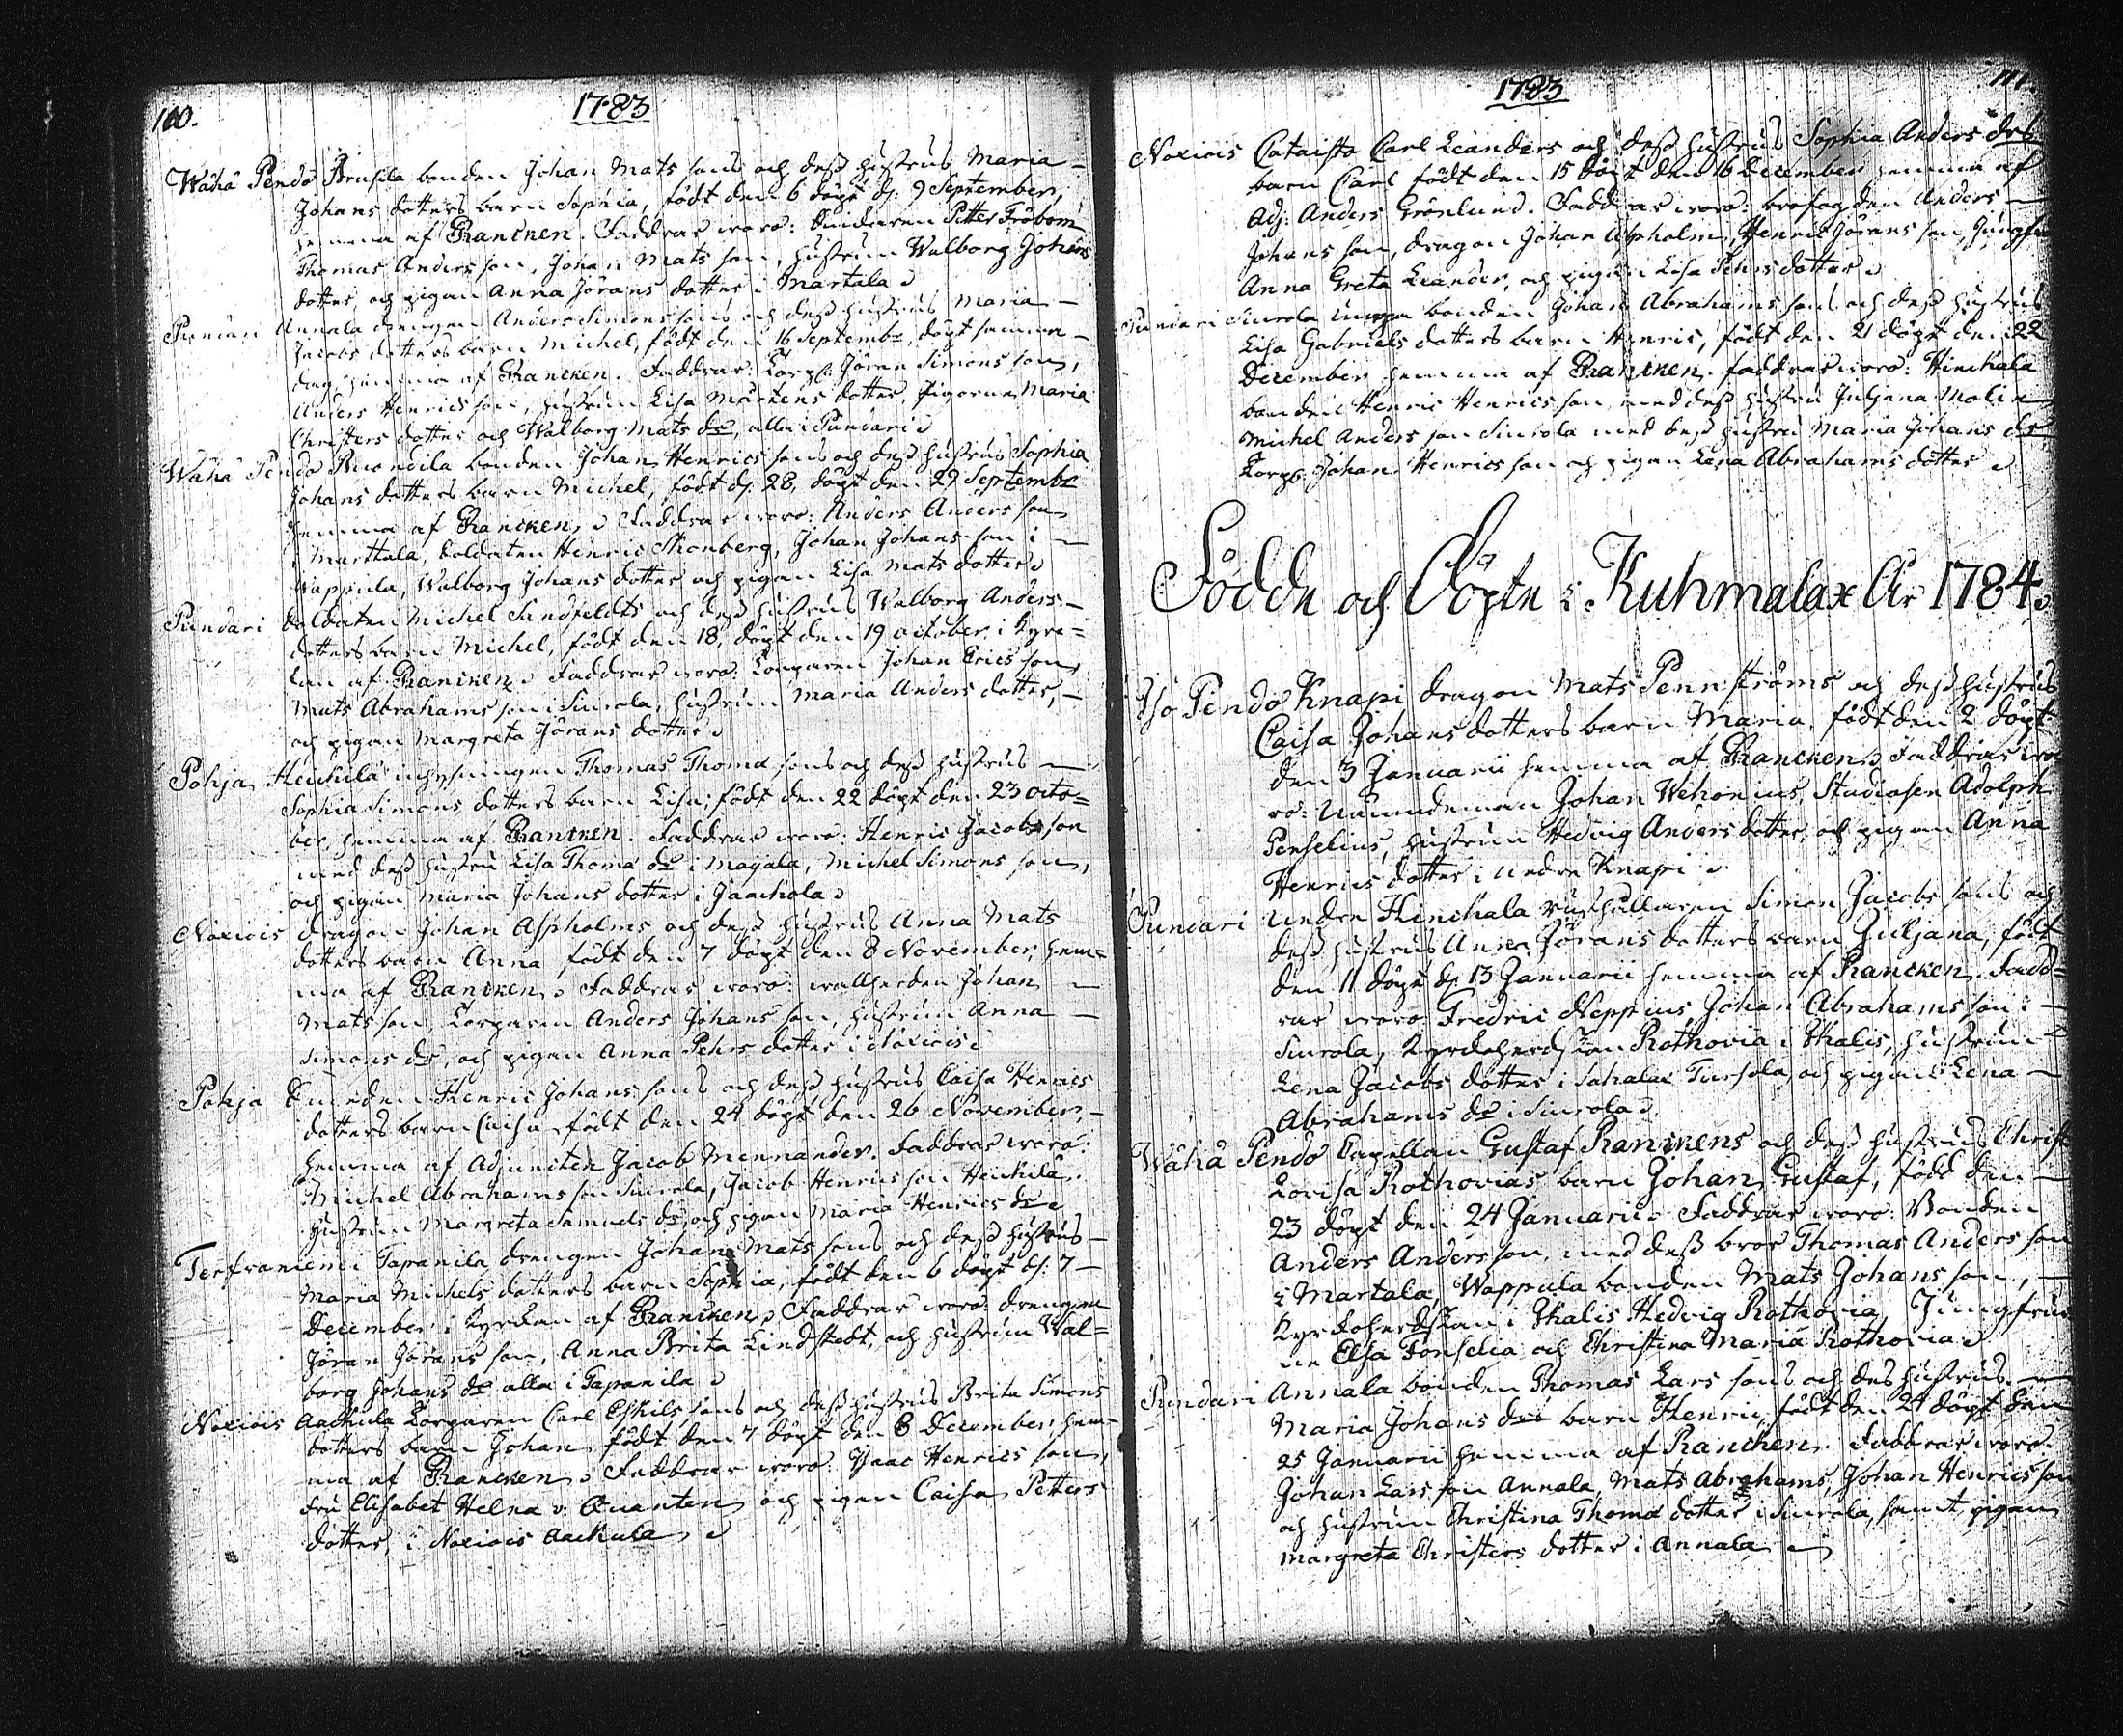 110.
1783
Wähä Pendo Brusila bonden Johan Mats sons och dess hustrus Maria
Johans dotters barn Sophia, födt den 6 döpt d. 9 September,
hemma af Rancken. Faddrar woro: Petter Fröbom
Thomas Anders son, Johan Mats son, hustrun Walborg Johans
dotter, och pigan Anna Jörans dotter i Martala
Pundari Annala drengen Anders Simons sons och dess hustrus Maria
Jacobs dotters barn Michel, födt den 16 Septembr, döpt samma
dag, hemma af Rancken. Faddrar: Korpr. Jöran Simons son,
Anders Henrics son, hustrun Lisa Mårtens dotter, Pigorna Maria
Christers dotter och Walborg Mats dr, alla i Pundari
Wähä Pendo bonden Johan Henrics sons och dess hustrus Sophia
Johans dotters barn Michel, födt d. 28, döpt den 29 Septembr
hemma af Rancken, Faddrar woro: Anders Anders son
i Marttala, Soldaten Henric Skonberg, Johan Johans son i
Wappula, Walborg Johans dotter och pigan Lisa Mats dotter
Pundari Soldaten Michel Sundfeldts och dess hustrus Walborg Anders
dotters barn Michel, födt den 18, döpt den 19 october i Kyr=
kan af Rancken. Faddrar woro: Torparen Johan Erics son,
Mats Abrahams son i Siurola, hustrun Maria Anders dotter,
och pigan Margreta Jörans dotter
Pohja Heickilä inhysningen Thomas Thomæ sons och dess hustrus
Sophia Simons dotters barn Lisa, födt den 22 döpt den 23 octo=
ber, hemma af Rancken. Faddrar woro: Henric Jacobs son
med dess hustru Lisa Thomæ dr i Mayala, Michel Simons son,
och pigan Maria Johans dotter i Jaackola
Noxiois dragon Johan Aspholms och dess hustrus Anna Mats
dotters barn Anna födt den 7 döpt den 8 November, hem=
ma af Rancken, Faddrar woro: wallherden Johan
Mats son, Torparen Anders Johans son, hustrun Anna
Simons dr, och pigan Anna Pehrs dotter i Noxiois
Pohja Smeden Henric Johans sons och dess hustrus Caisa Henrics
dotters barn Caisa, födt den 24 döpt den 26 November,
hemma af Adjuncten Jacob Mennander. Faddrar woro:
Michel Abrahams son Siurola, Jacob Henrics son Heickilä,
hustrun Margreta Samuels dr, och pigan Maria Henrics dr
Terfraniemi Tapanila drengen Johan Mats sons och dess hustrus
Maria Michels dotters barn Sophia, födt den 6 döpt d. 7
December i Kyrkan af Rancken, Faddrar woro: drengen
Jöran Jörans son, Anna Brita Lindstedt, och hustrun Wal=
borg Johans dr alla i Tapanila
Noxiois Aackula Torparen Carl Eskils sons och dess hustrus Brita Simons
dotters barn Johan, födt den 7 döpt den 8 December, hem=
ma af Rancken, Faddrar woro: Isaac Henrics son,
Fru Elisabet Helna v. Quanten, och pigan Caisa Petters
dotter, i Noxiois Aackula
1783
111.
Noxiois Carl Leanders och dess hustrus Sophia Anders drs
barn Carl födt den 15 döpt den 16 December hemma af
Adj: Anders Grönlund. Faddrar woro: brofogden Anders
Johans son, dragon Johan Aspholm, Henric Jörans son, Jungfru
Anna Greta Leander, och pigan Lisa Pehrs dotter
Pundari Siurola bonden Johan Abrahams sons och dess hustrus
Lisa Gabriels dotters barn Henric, födt den 21 döpt den 22
December hemma af Rancken. faddrar woro: Hinckala
bonden Henric Henrics son med dess hustru Juljana Malin
Michel Anders son Siurola med dess hustru Maria Johans dr
Korpr. Johan Henrics son och pigan Lena Abrahams dotter
Födde och Döpte i Kuhmalax År 1784
Iso Pendo Knapi dragon Mats Pennströms och dess hustrus
Caisa Johans dotters barn Maria, födt den 2 döpt
den 3 Januarii hemma af Rancken, Faddrar wo
ro: Johan Wehonius, Studiosen Adolph
Penselius, hustrun Hedvig Anders dotter, och pigan Anna
Henrics dotter i nedre Knapi
Pundari nedre Hinckala rusthållaren Simon Jacobs sons och
dess hustrus Anna Jörans dotters barn Juljana, födt
den 11 döpt d. 13 Januarii hemma af Rancken. Fadd=
rar woro Fredric Neppius, Johan Abrahams son i
Siurola, Kyrkoherdskan Rothovia i Thalis, hustrun
Lena Jacobs dotter i Sahalax Tursola, och pigan Lena
Abrahams dr i Siurola
Wähä Pendo Capellan Gustaf Ranckens och dess hustrus Christ
Lovisa Rothovias barn Johan Gustaf, född den
23 döpt den 24 Januarii. Faddrar woro: Bonden
Anders Anders son, med dess bror Thomas Anders son
i Martala, Wappula bonden Mats Johans son,
Kyrkoherdskan i Thalis Hedvig Rothovia, Jungfrur
na Elsa Fonselia och Christina Maria Rothovia
Pundari Annala bonden Thomas Lars sons och des hustrus
Maria Johans drs barn Henric, födt den 24 döpt den
25 Januarii hemma af Rancken. Faddrar woro:
Johan Lars son Annala, Mats Abrahams, Johan Henrics son
och hustrun Christina Thomæ dotter i Siurola, samt pigan
Margreta Christers dotter i Annala